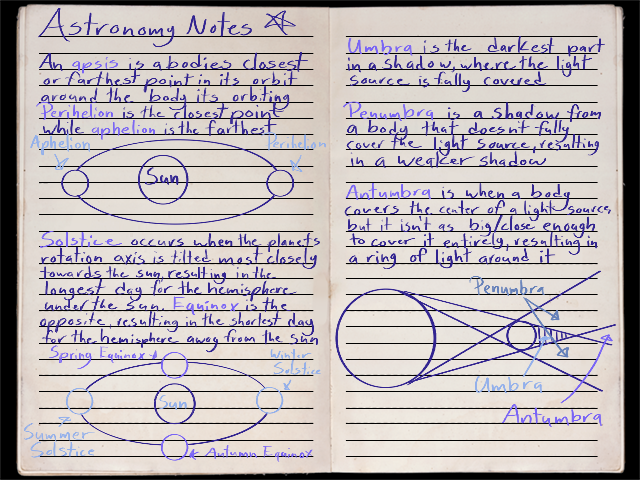 Astronomy Notes
An apsis is a bodies closest
or farthest point in its orbit
around the body its orbiting
Perihelion is the closest point
while aphelion is the farthest
Aphelion
Perihelion
Sun
Solstice occurs when the planets
rotation axis is tilted most closely
towards the sun, resulting in the
longest day for the hemisphere
under the sun. Equinox is the
opposite, resulting in the shortest day
for the hemisphere away from the sun
Spring Equinox
Winter
Solstice
Sun
Summer
Solstice
Autumn Equinox
Umbra is the darkest part
in a shadow, where the light
source is fully covered
Penumbra is a shadow from
a body that doesn't fully
cover the light source, resulting
in a weaker shadow
Antumbra is when a body
covers the center of a light source,
but it isn't as big/close enough
to cover it entirely, resulting in
a ring of light around it
Penumbra
Umbra
Antumbra